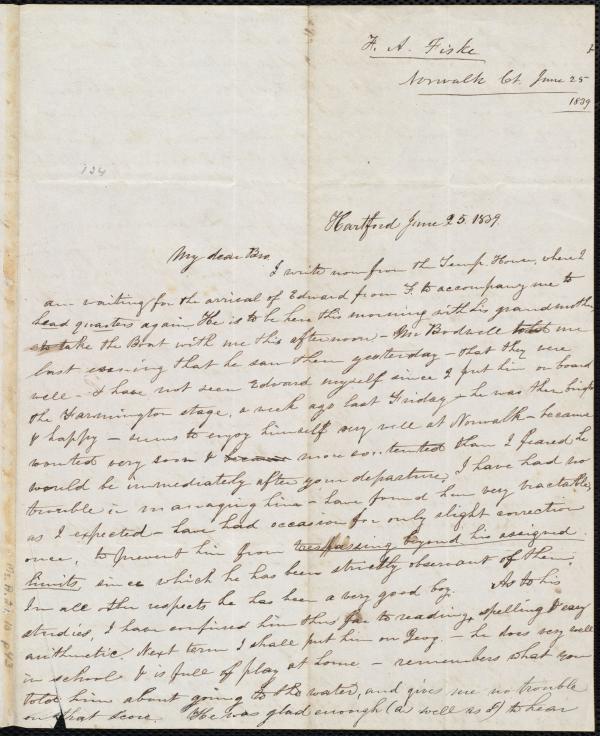 F. A. Fiske
Norwalk Ct. June 25
1839
124
Hartford June 25. 1839.
My dear Bro.
I write now from the Temp. House, where I
am waiting for the arrival of Edward from F. to accompany me to
head quarters again He is to be here this morning with his grandmother
to take the Boat with me this afternoon - Mr Bodwell told me
last evening that he saw them yesterday - that they were
well - I have not seen Edward myself since I put him on board
the Farmington stage, a week ago last Friday & he was then bright
& happy - seems to enjoy himself very well at Norwalk - became
wonted very soon & more contented than I feared he
would be immediately after your departure, I have had no
trouble in managing him - have found him very tractable,
as I expected - have had occasion for only slight correction
once, to prevent him from trespassing beyond his assigned
limits, since which he has been strictly observant of them.
In all other respects he has been a very good boy. As to his
studies, I have confined him thus far to reading, spelling & easy
arithmetic. Next term I shall put him on Geog. - he does very well
in school & is full of play at home - remembers what you
told him about going to the water, and gives me no trouble
on that score. He was glad enough (as well as I) to hear